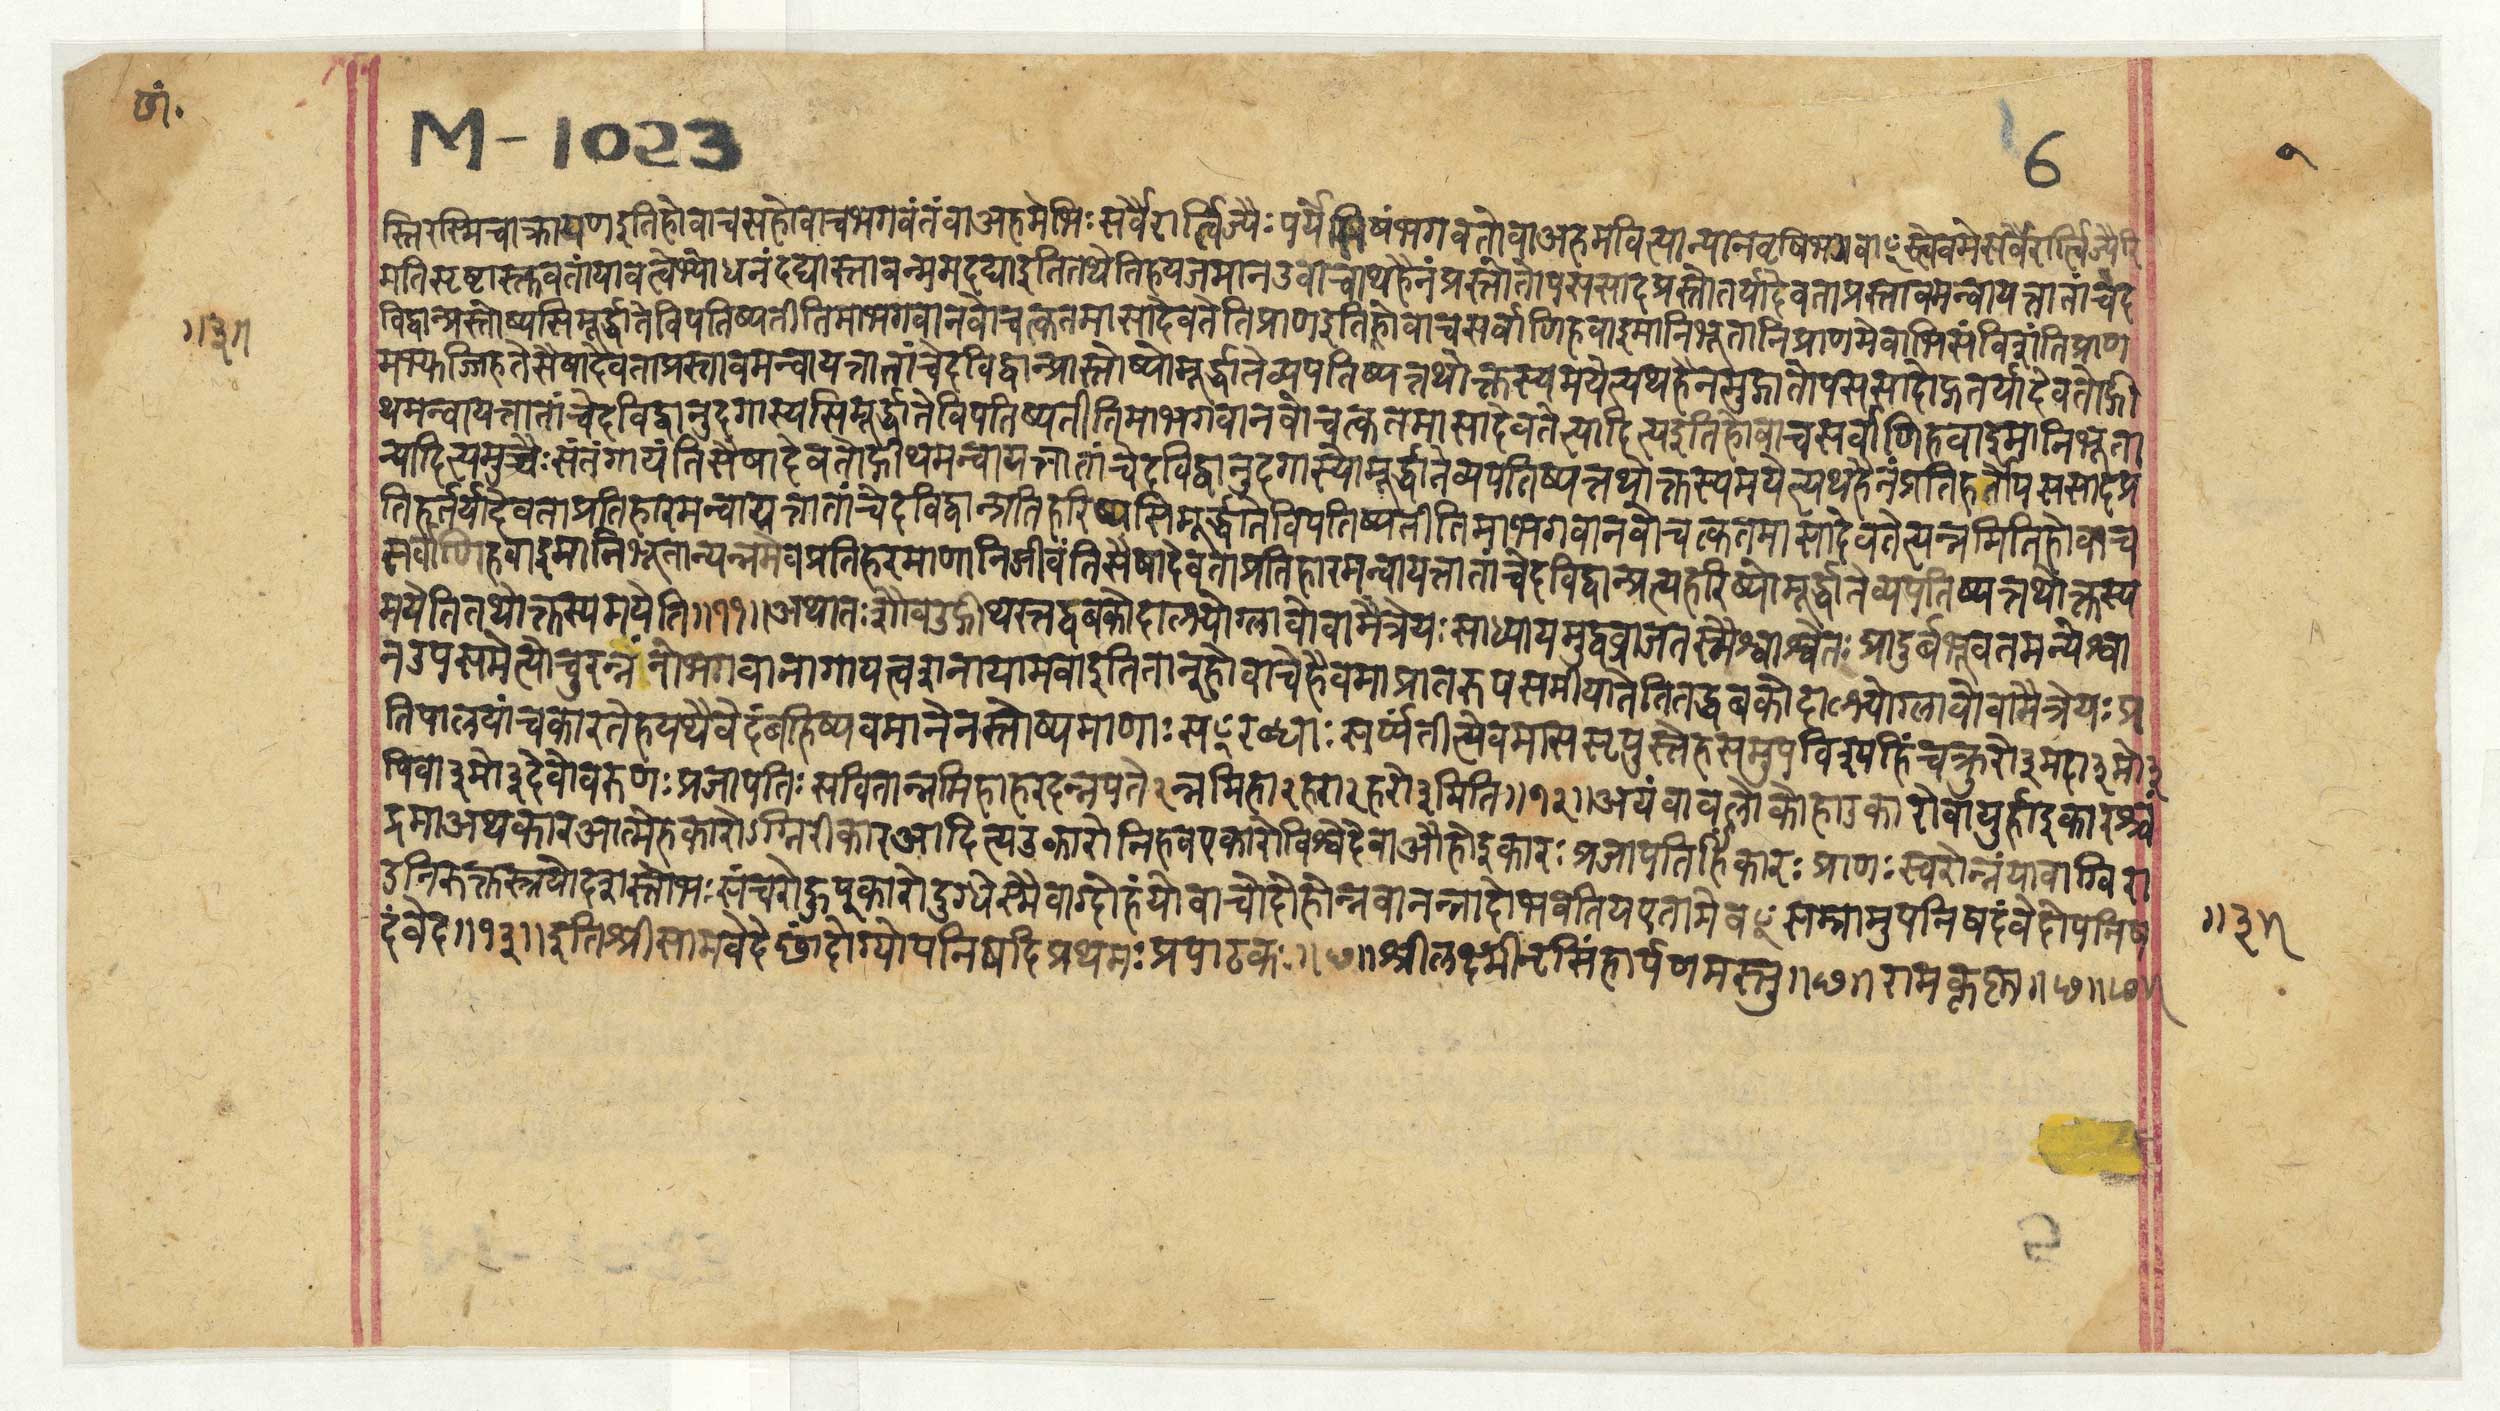 छां.
M-1023
6
१
स्तिरस्मिचाक्रायणइतिहोवाचसहोवाचभगवंतंवाअहमेभिःसर्वैरार्त्विज्यैःपर्यैषिषंभगवतोवाअहमवित्यान्यानवृषिभगवाꣳस्त्वेवमेसर्वैरार्त्विज्यैरि
मतिसृष्टास्तुवतांयावत्त्वेभ्योधनंदद्यास्तावन्ममदद्याइतितथेतिहयजमानउवाचाथहैनंप्रस्तोतोपससादप्रस्तोतर्यादेवताप्रस्तावमन्वायत्तातांचेद
विद्वान्प्रस्तोष्यसिमूर्द्धातेविपतिष्यतीतिमाभगवानवोचत्कतमासादेवतेतिप्राणइतिहोवाचसर्वाणिहवाइमानिभूतानिप्राणमेवाभिसंविशंतिप्राण
॥३॥
मभ्युज्जिहतेसैषादेवताप्रस्तावमन्वायत्तातांचेदविद्वान्प्रास्तोष्योमूर्द्धातेव्यपतिष्यत्तथोक्तस्यमयेत्यथहैनमुद्गातोपससादोद्गातर्यादेवतोद्गी
थमन्वायत्तातांचेदविद्वानुदगास्यसिमूर्द्धातेविपतिष्यतीतिमाभगवानवोचत्कतमासादेवतेत्यादित्यइतिहोवाचसर्वाणिहवाइमानिभूता
न्यादित्यमुच्चैःसंतंगायंतिसैषादेवतोद्गीथमन्वायत्तातांचेदविद्वानुदगास्योमूर्द्धातेव्यपतिष्यत्तथोक्तस्यमयेत्यथहैनंप्रतिहर्तोपससादप्र
तिहर्तर्यादेवताप्रतिहारमन्वायत्तातांचेदविद्वान्प्रतिहरिष्यसिमूर्द्धातेविपतिष्यतीतिमाभगवानवोचत्कतमासादेवतेत्यन्नमितिहोवाच
सर्वाणिहवाइमानिभूतान्यन्नमेवप्रतिहरमाणानिजीवंतिसैषादेवताप्रतिहारमन्वायत्तातांचेदविद्वान्प्रत्यहरिष्योमूर्द्धातेव्यपतिष्यत्तथोक्तस्य
मयेतितथोक्तस्यमयेति॥११॥अथातःशौवउद्गीथस्तद्धबकोदाल्भ्योग्लावोवामैत्रेयःस्वाध्यायमुद्वव्राजतस्मैश्वाश्वेतःप्रादुर्बभूवतमन्येश्वा
नउपसमेत्योचुरन्नंनोभगवानागायत्वशनायामवाइतितान्होवाचेहैवमाप्रातरुपसमीयातेतितद्धबकोदाल्भ्योग्लावोवामैत्रेयःप्र
तिपालयांचकारतेहयथैवेदंबहिष्पवमानेनस्तोष्यमाणाःसꣳरब्धाःसर्प्पंतीत्येवमाससृपुस्तेहसमुपविश्यहिंचक्रुरो३मदा३मों३
पिबा३मों३देवोवरुणःप्रजापतिःसवितान्नमिहाहरदन्नपते३न्नमिहा२हरा२हरो३मिति॥१२॥अयंवावलोकोहाउकारोवायुर्हाइकारश्चं
द्रमाअथकारआत्मेहकारोऽग्निरीकारआदित्यउकारोनिहवएकारोविश्वेदेवाऔहोइकारःप्रजापतिर्हिंकारःप्राणःस्वरोन्नंयावाग्विरा
डनिरुक्तस्त्रयोदशस्तोभःसंचरोहुपुकारोदुग्धेस्मैवाग्दोहंयोवाचोदोहोन्नवानन्नादोभवतियएतामेवꣳसाम्नामुपनिषदंवेदोपनिष
दंवेद॥१३॥इतिश्रीसामवेदेछांदोग्योपनिषदिप्रथमःप्रपाठकः॥छ॥श्रीलक्ष्मीनृसिंहार्पणमस्तु॥छ॥रामकृष्ण॥छ॥छ॥
॥३॥